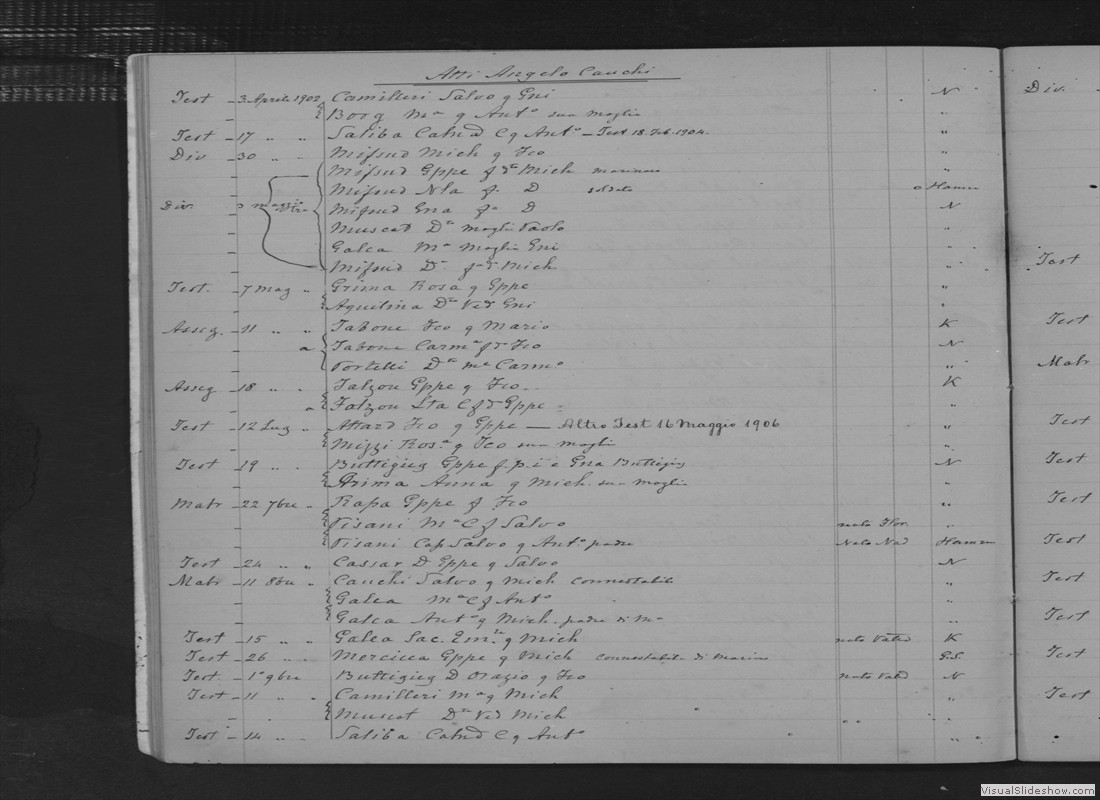 Atti Angelo Cauchi
Test 3 Aprile 1902 Camilleri Salvo q Gni N Div.
Borg Ma q Anto sua moglie "
Test 17 " " Saliba Catnd C q Anto - Test 18 Feb. 1904. "
Div 30 " " Mifsud Mich q Fco "
Mifsud Gppe f dto Mich marinaro "
Mifsud Nla f D soldato Hamrun
Div Mifsud Gna fa D N
Muscat Da moglie Paolo "
Galea Ma moglie Gni "
Mifsud Da f Mich " Test
Test. 7 mag " Grima Rosa q Gppe "
Aquilina Da Ved Gni "
Asseg. 11 " " Tabone Fco q Mario K Test
a Tabone Carma f Fco N
Portelli Da Carmo " Matr
Asseg 18 " " Falzon Gppe q Fco K
a Falzon C f Gppe "
Test 12 Lug " Attard Fco q Gppe — Altro Test 16 Maggio 1906 " Test
Mizzi Rosa q Fco sua moglie "
Test 19 " " Buttigieg Gppe f. p. i e Gna Buttigieg N Test
Grima Anna q Mich sua moglie "
Matr 22 7bre " Rapa Gppe f Fco " Test
Pisani Ma C f Salvo nata Flor. "
Pisani Cap Salvo q Anto padre Nato Nad Hamrun Test
Test 24 " " Cassar D Gppe q Salvo N
Matr 11 8bre " Cauchi Salvo q Mich connestabile " Test
Galea Ma C f Anto "
Galea Anto q Mich padre di Ma " Test
Test 15 " " Galea Sac. q Mich nato K
Test 26 " " Mercieca Gppe q Mich connestabile di Marina Test
Test 1° 9bre Buttigieg D Orazio q Fco nato N
Test 11 " Camilleri Ma q Mich " Test
Muscat Da Ved Mich " "
Test 14 " " Saliba Catnd C q Anto " "
VisualSlideshow.com